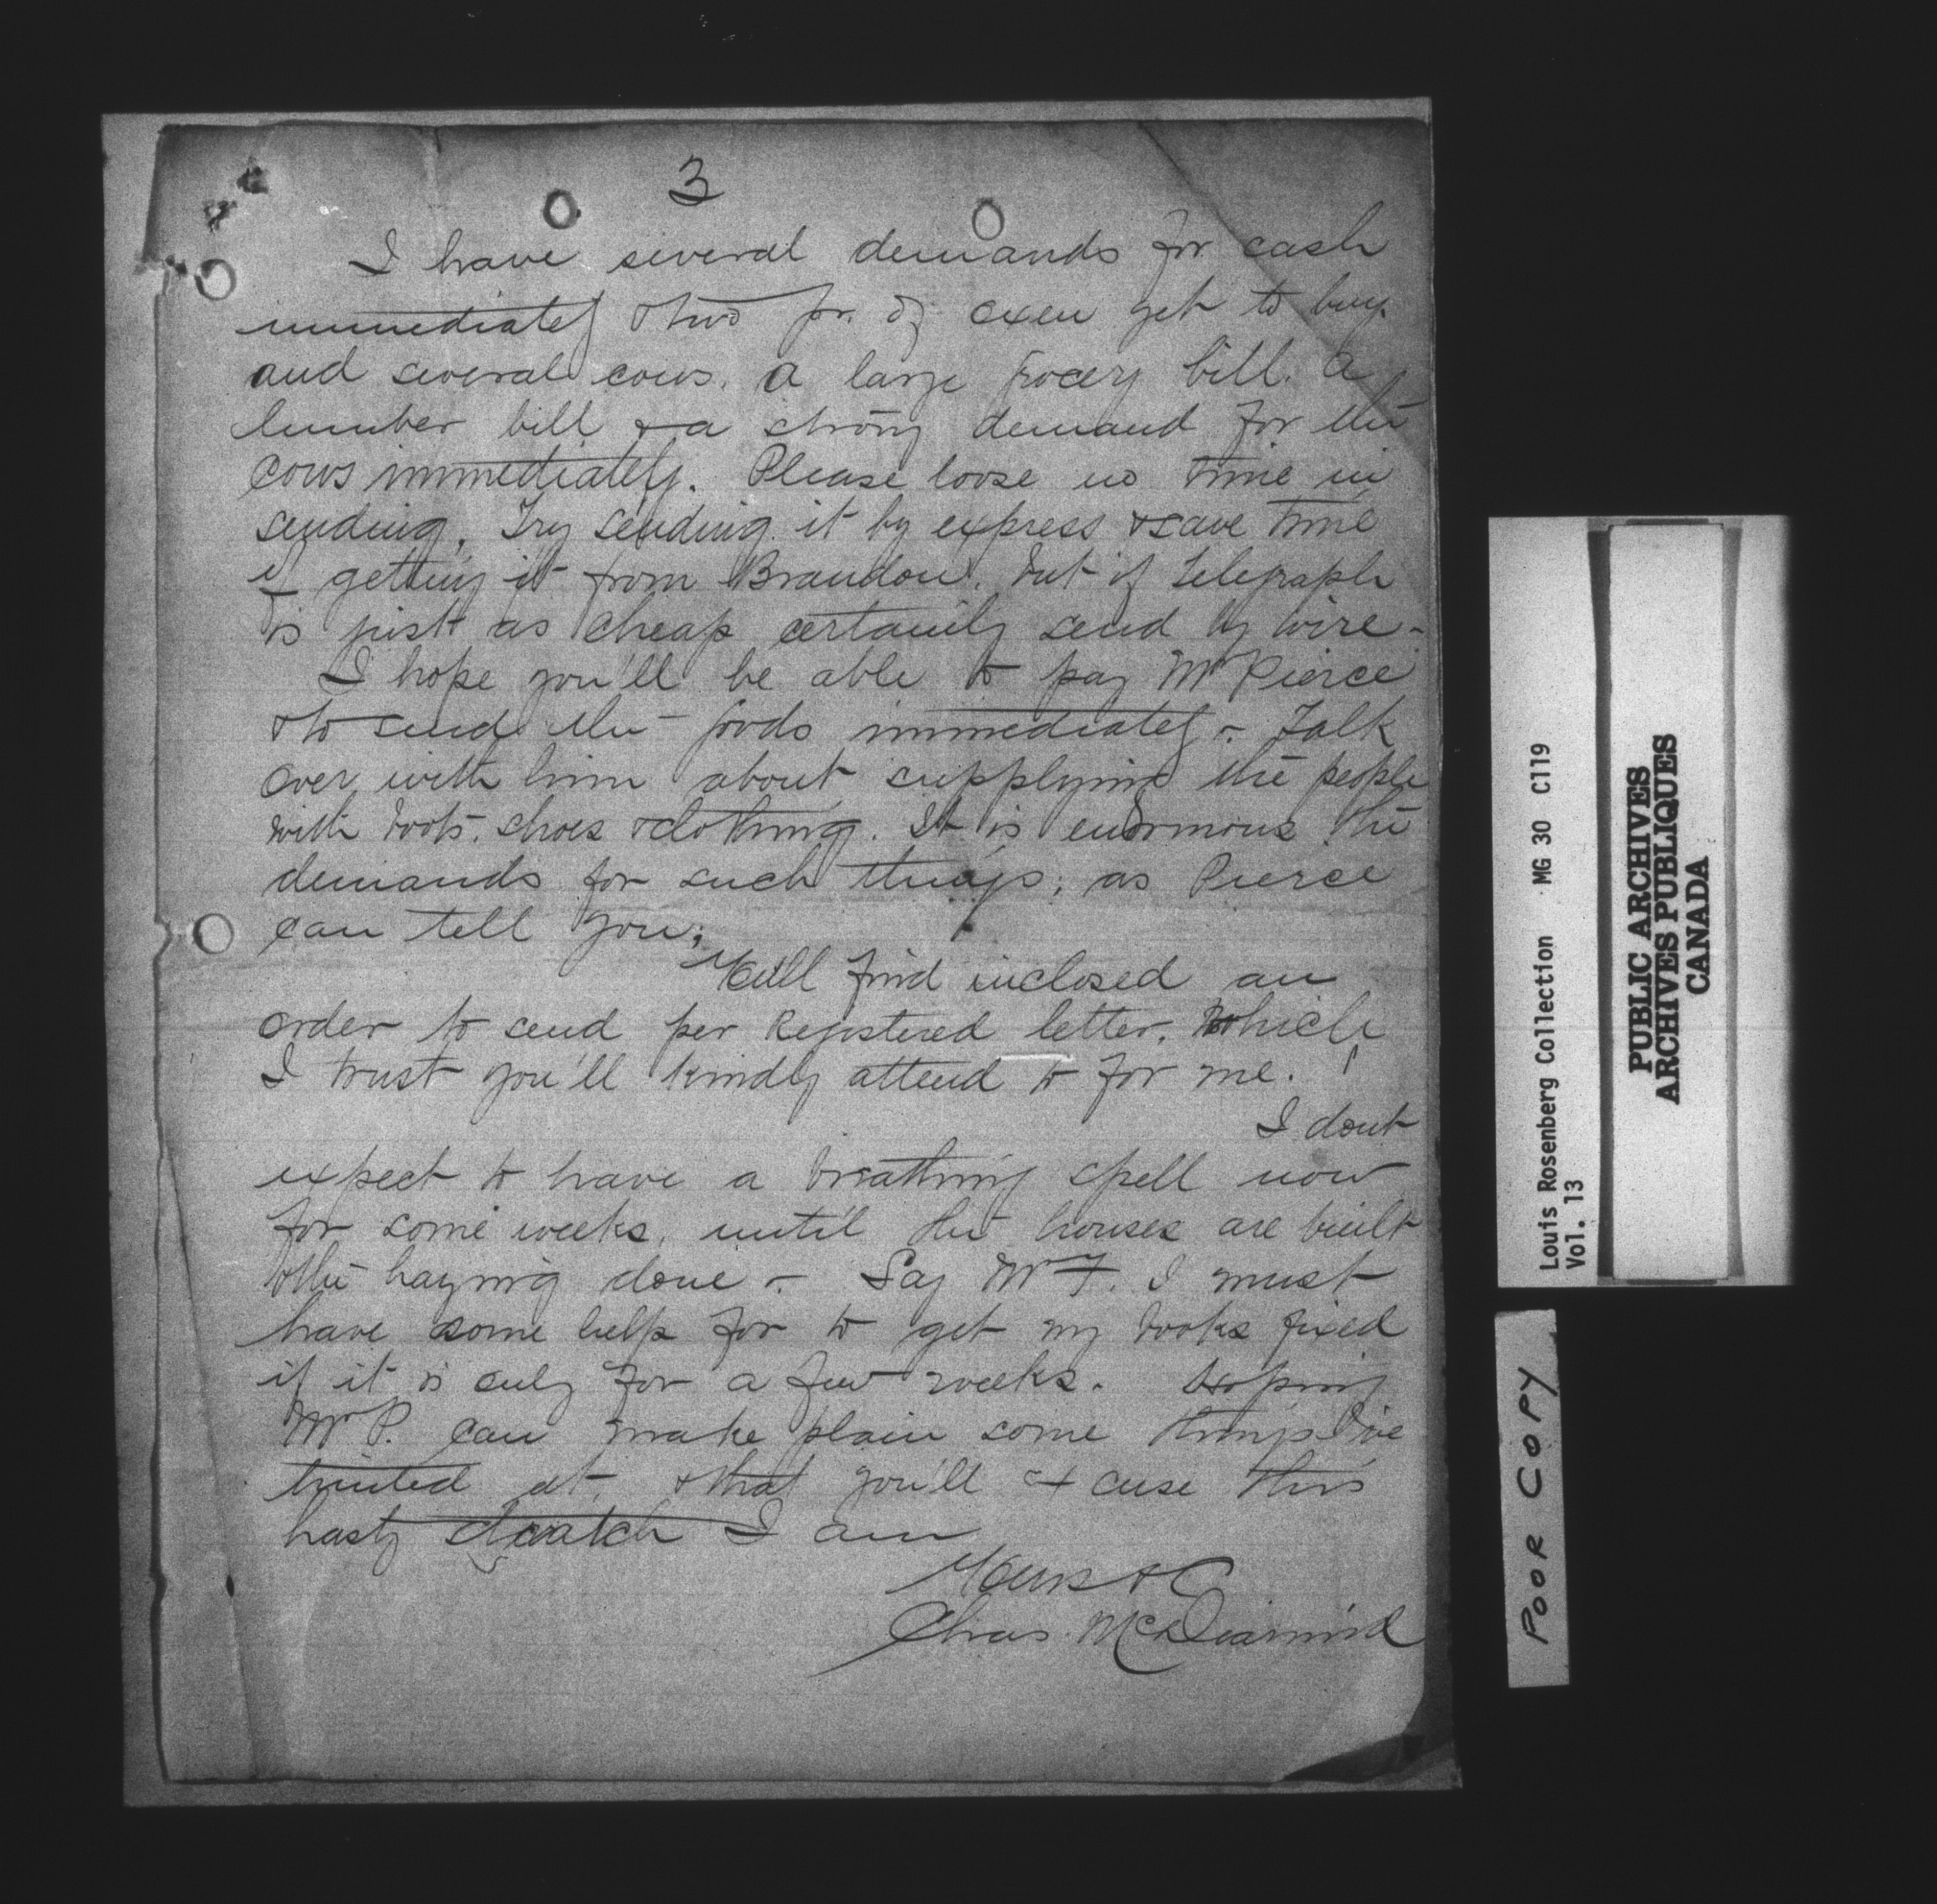 3
I have several demands for cash
immediately & two pr. of oxen yet to buy.
and several cows. a large grocery bill. a
lumber bill & a strong demand for the
cows immediately. Please loose no time in
sending. Try sending it by express & save time
if getting it from Brandon. but if telegraph
is just as cheap certainly send by wire -
I hope you'll be able to pay Mr Pierce
& to send the goods immediately - Talk
over with him about supplying the people
with boots, shoes & clothing. It is enormous the
demands for such things; as Pierce
can tell you;
You'll find inclosed an
order to send per Registered letter. Which
I trust you'll kindly attend to for me.
I dont
expect to have a breathing spell now
for some weeks, until the houses are built
& the haying done - Say Mr F. I must
have some help for to get my books fixed
if it is only for a few weeks. Hoping
Mr P. can make plain some things I've
hinted at, & that you'll excuse this
hasty scratch I am
Yours &c
Chas. McDiarmid
Louis Rosenberg Collection MG 30 C119
Vol. 13
PUBLIC ARCHIVES
ARCHIVES PUBLIQUES
CANADA
POOR COPY